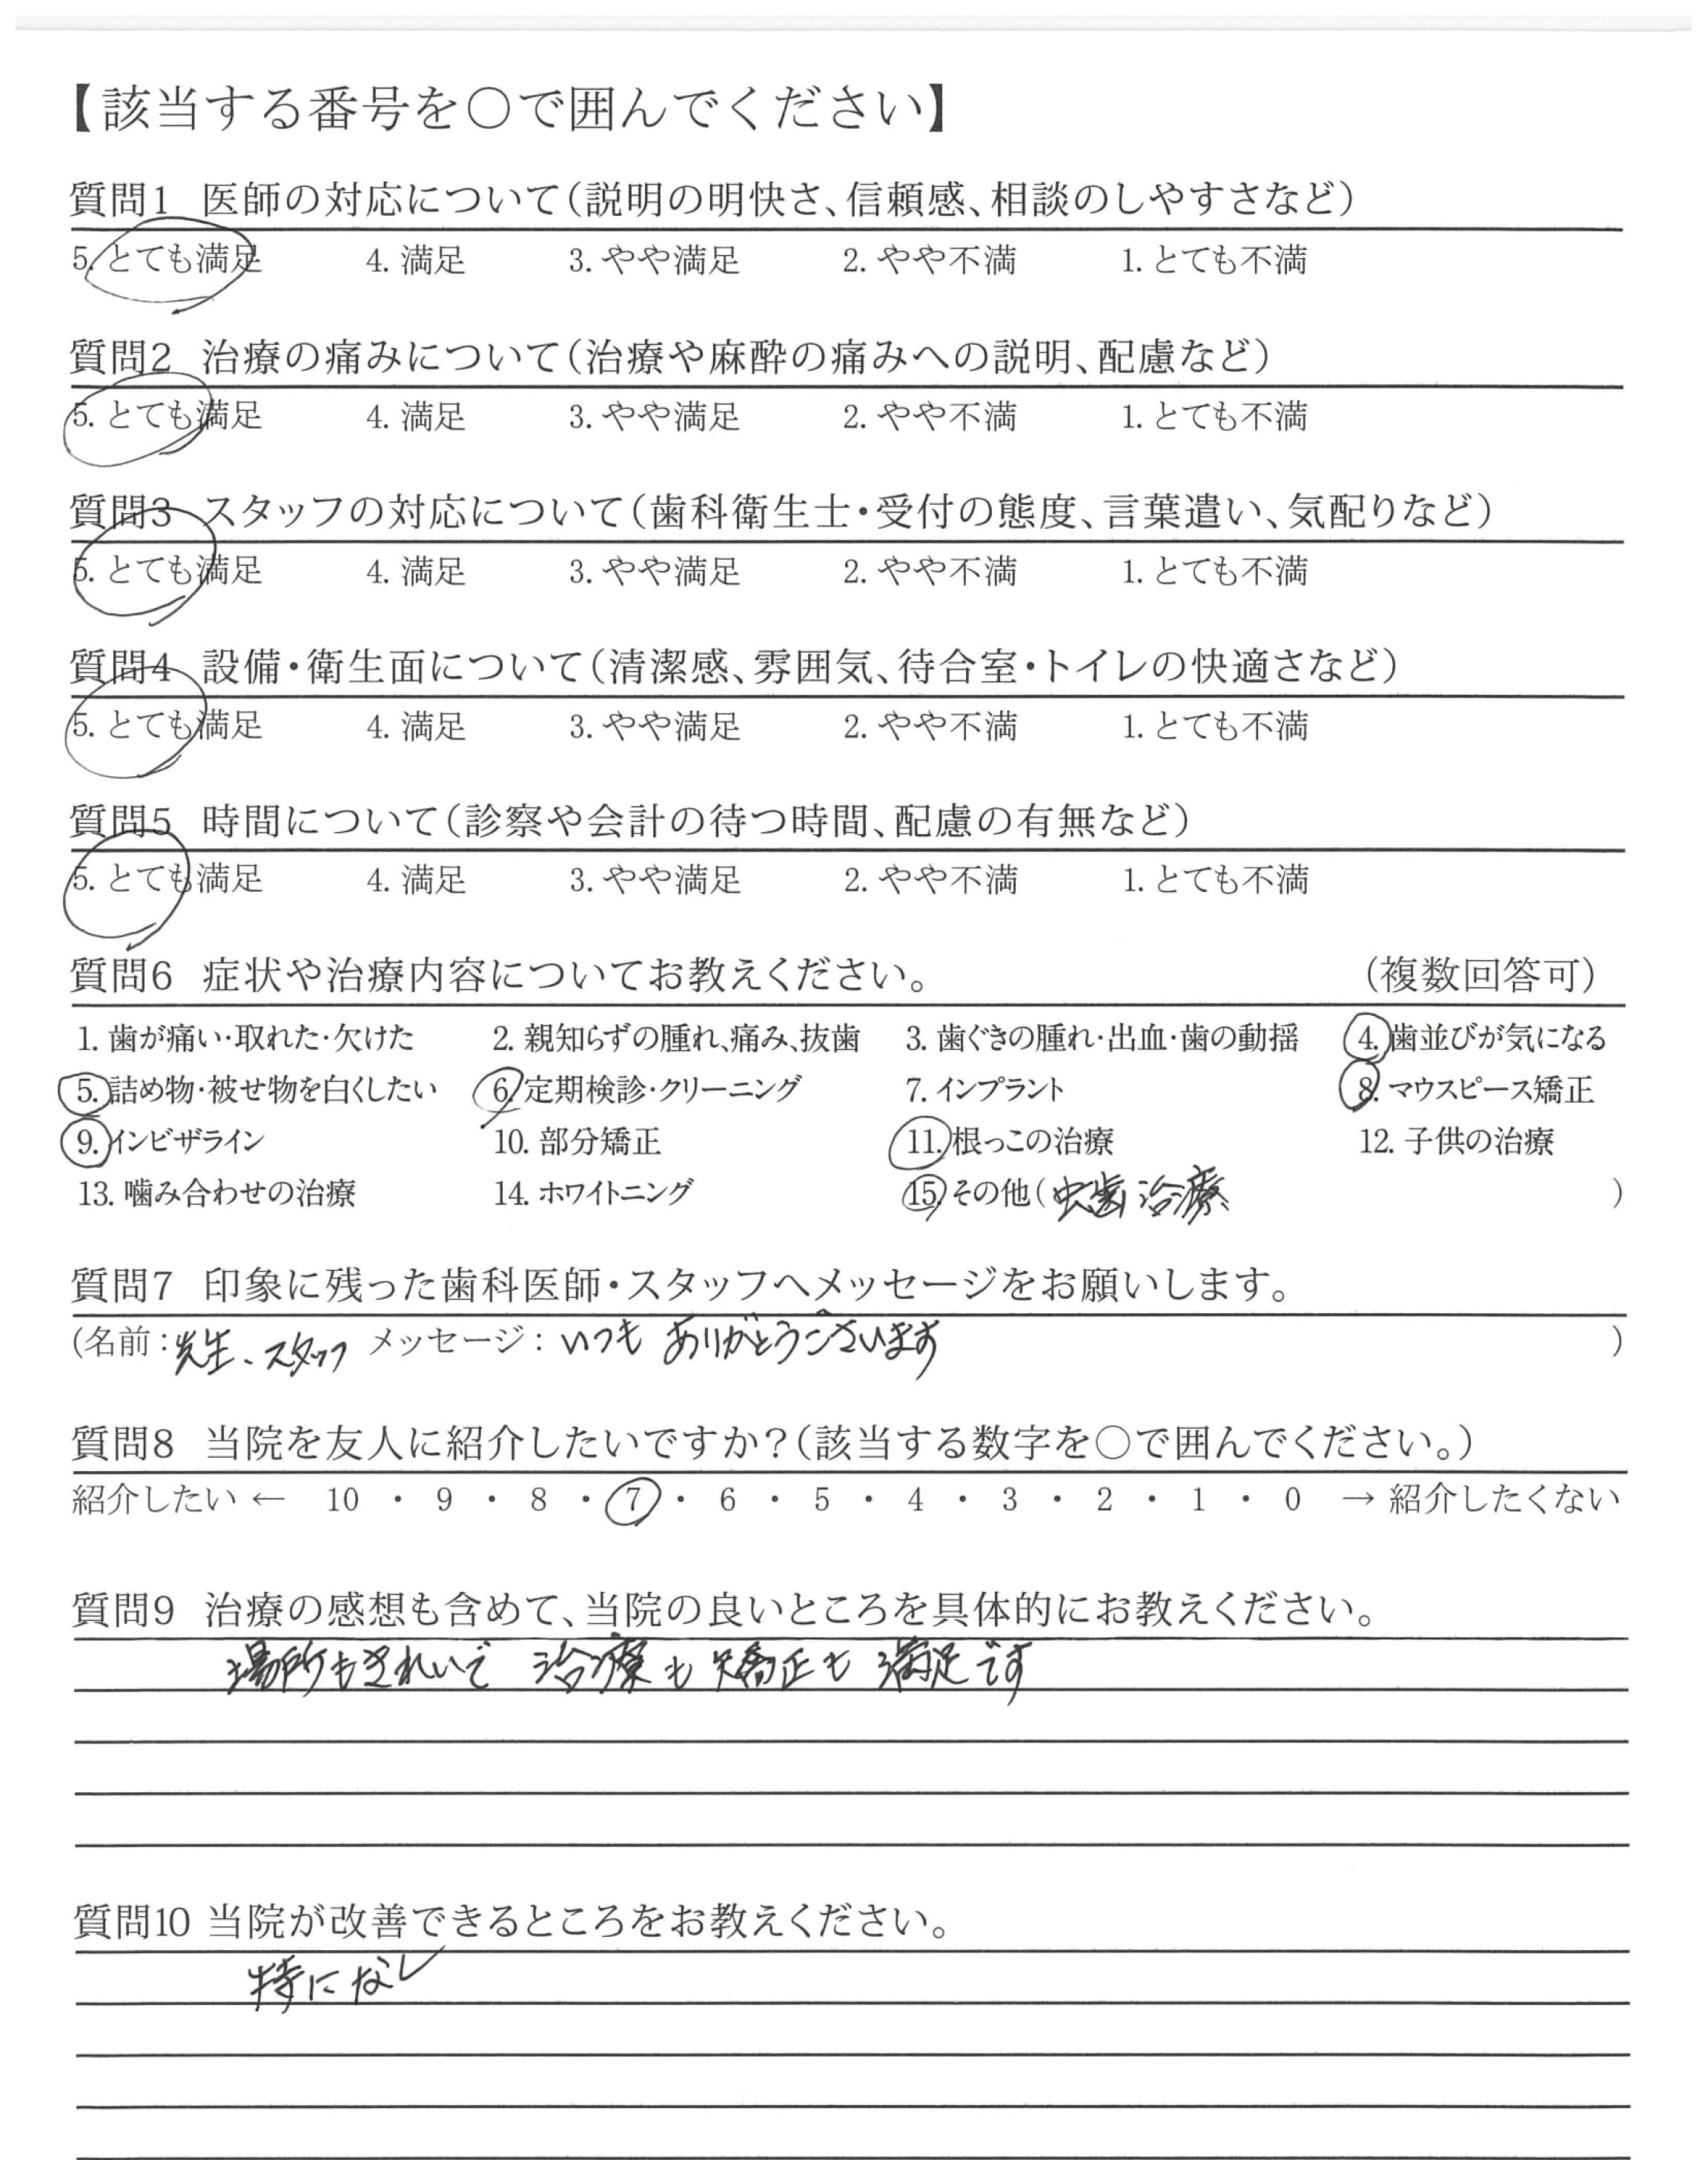 【該当する番号を○で囲んでください】
質問1 医師の対応について(説明の明快さ、信頼感、相談のしやすさなど)
5. とても満足 4. 満足 3. やや満足 2. やや不満 1. とても不満
質問2 治療の痛みについて(治療や麻酔の痛みへの説明、配慮など)
5. とても満足 4. 満足 3. やや満足 2. やや不満 1. とても不満
質問3 スタッフの対応について(歯科衛生士・受付の態度、言葉遣い、気配りなど)
5. とても満足 4. 満足 3. やや満足 2. やや不満 1. とても不満
質問4 設備・衛生面について(清潔感、雰囲気、待合室・トイレの快適さなど)
5. とても満足 4. 満足 3. やや満足 2. やや不満 1. とても不満
質問5 時間について(診察や会計の待つ時間、配慮の有無など)
5. とても満足 4. 満足 3. やや満足 2. やや不満 1. とても不満
質問6 症状や治療内容についてお教えください。 (複数回答可)
1. 歯が痛い・取れた・欠けた 2. 親知らずの腫れ、痛み、抜歯 3. 歯ぐきの腫れ・出血・歯の動揺 4. 歯並びが気になる
5. 詰め物・被せ物を白くしたい 6. 定期検診・クリーニング 7. インプラント 8. マウスピース矯正
9. インビザライン 10. 部分矯正 11. 根っこの治療 12. 子供の治療
13. 噛み合わせの治療 14. ホワイトニング 15. その他(虫歯治療)
質問7 印象に残った歯科医師・スタッフへメッセージをお願いします。
(名前：先生、スタッフ メッセージ：いつも ありがとうございます)
質問8 当院を友人に紹介したいですか?(該当する数字を○で囲んでください。)
紹介したい ← 10 ・ 9 ・ 8 ・ 7 ・ 6 ・ 5 ・ 4 ・ 3 ・ 2 ・ 1 ・ 0 → 紹介したくない
質問9 治療の感想も含めて、当院の良いところを具体的にお教えください。
場所もきれいで 治療も矯正も 満足です
質問10 当院が改善できるところをお教えください。
特になし